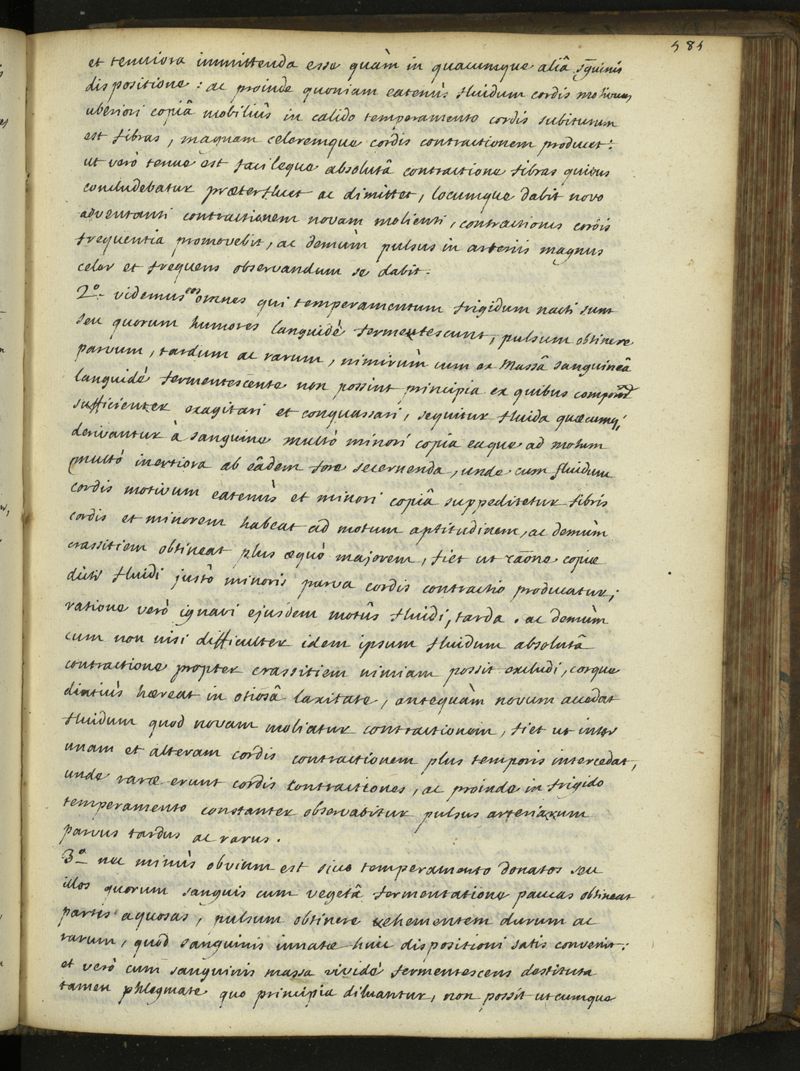 585
et tenuiora immittenda esse quàm in quacumque aliâ sguinis
dispositione : ac proinde quoniam eatenùs fluidum cordis motivum
uberiori copiâ mobiliùs in calido temperamento cordis subiturum
est fibras, magnam celeremque cordis contractionem producet :
ut verò tenue est facileque absolutâ contractione fibras quibus
concludebatur præterfluet ac dimittet, locumque dabit novo
adventanti contractionem novam molienti, contractionis cordis
frequentia promovebit, ac demùm pulsus in arteriis magnus
celer et frequens observandum se dabit.
2.o videmus eos omnes qui temperamentum frigidum nacti sunt
seu quorum humores languidè fermentescunt, pulsum obtinere
parvum, tardum ac rarum, nimirùm cum ex massâ sanguineâ
languidè fermentescente non possint principia ex quibus
sufficienter exagitari et conquassari, sequitur fluida quæcumq;
derivantur à sanguine multò minori copia eaque ad motum
multò inertiora ab eâdem fore secernenda, unde cum fluidum
cordis motivum eatenùs et minori copiâ suppeditetur fibris
cordis et minorem habeat ad motum aptitudinem, ac demùm
crassitiem obtineat plus æquò majorem, fiet ut raõne copiæ
dicti fluidi justò minoris parva cordis contractio producatur;
ratione verò ignavi ejusdem motûs fluidi, tarda. ac demùm
cum non nisi difficulter idem ipsum fluidum absolutâ
contractione propter crassitiem nimiam possit excludi, corque
diutiùs hæreat in otiosâ laxitate, antequàm novum accedat
fluidum quod novam moliatur contractionem, fiet ut inter
unam et alteram cordis contractionem plus temporis intercedat,
unde raræ erunt cordis contractiones, ac proinde in frigido
temperamento constanter observabitur pulsus arteriarum
parvus tardus ac rarus.
3.o nec minùs obvium est sicco temperamento donatos seu
illos quorum sanguis cum vegetâ fermentatione paucas obtineat
partis aquosas, pulsum obtinere vehementem durum ac
rarum, quod sanguinis innatæ huic dispositioni satis convenit :
et verò cum sanguinis massa vividè fermentescens destituta
tamen phlegmate quo principia diluantur, non possit utcumque